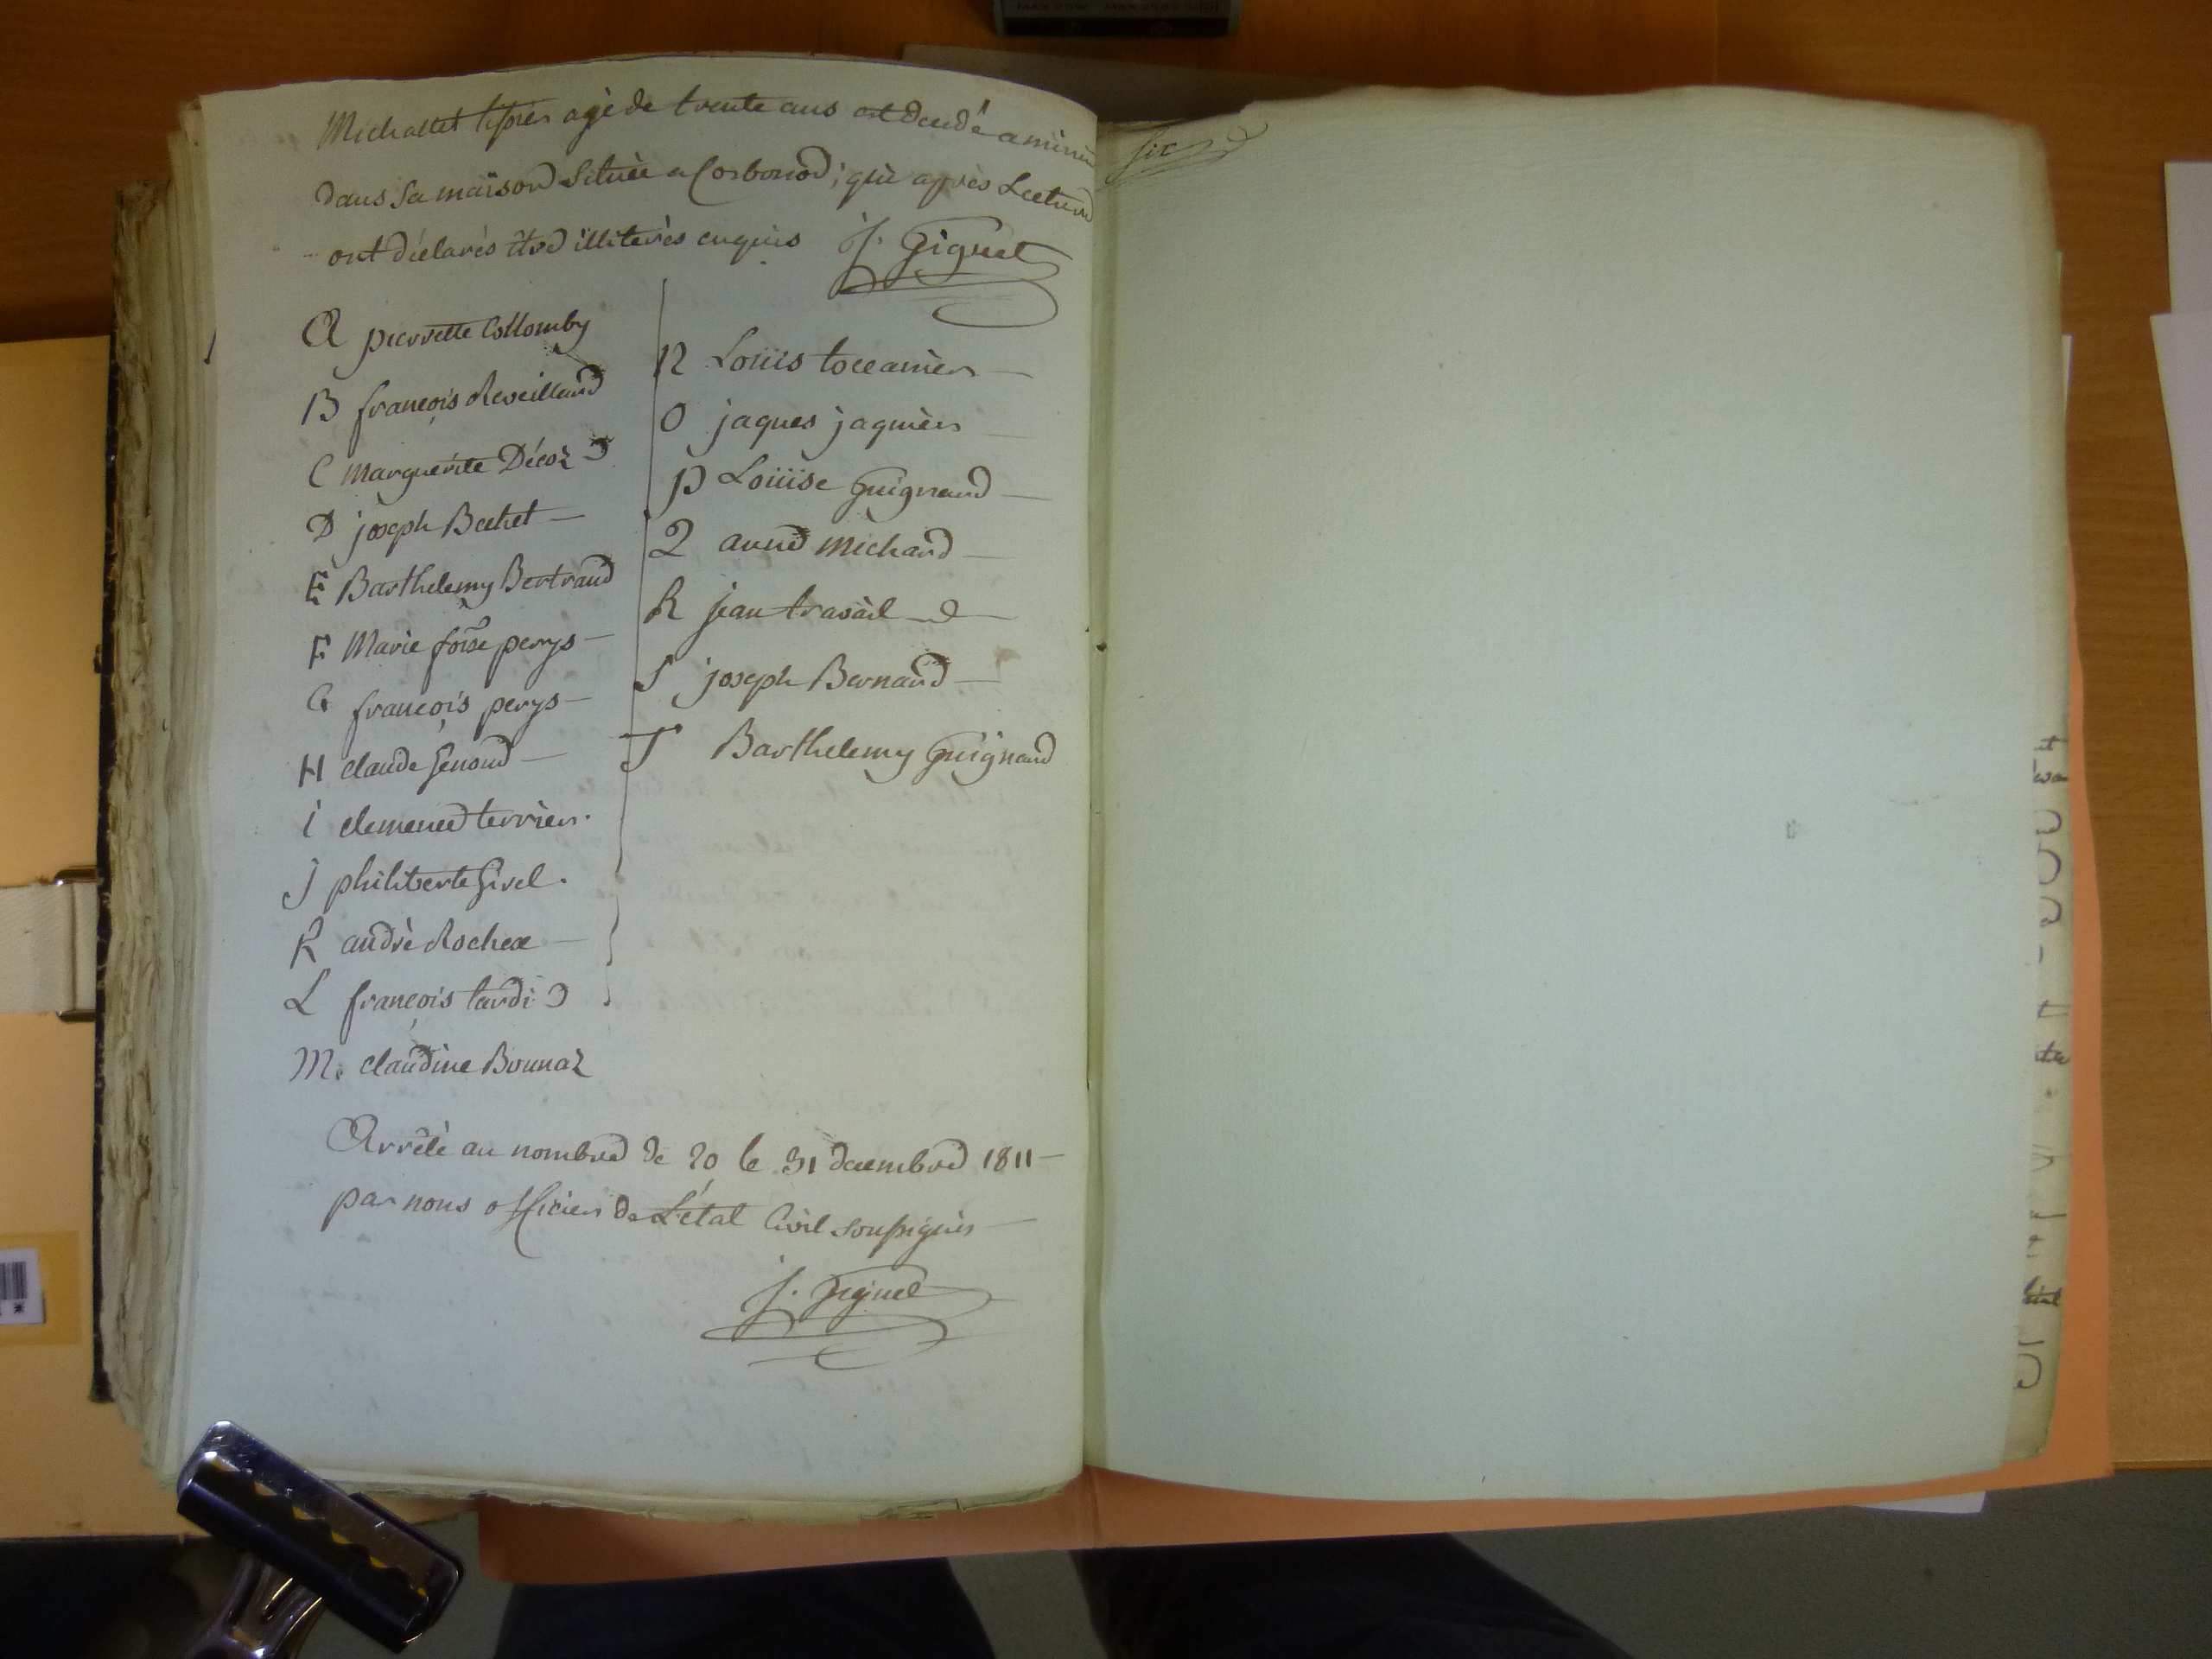 Michallet tissier agé de trente ans est decedé a minui
dans sa maison située a Corbonod; qui après Lecture
ont déclarés être illiterés enquis J. Giguet
A pierrette Collomby
B françois Reveillaud
C Marguerite Décoz
D joseph Bechet
E Barthelemy Bertrand
F Marie foise perys
G françois perys
H claude Genoud
i clemence terrier.
j philiberte Girel.
K andrè Rochex
L françois tardi
M. claudine Bonnaz
N Louis toccanier
O jaques jaquier
P Louise guignard
Q anne Michaud
R jean travail
S joseph Bernard
T Barthelemy guignard
Arrêté au nombre de 20 le 31 decembre 1811
par nous officier de L'état Civil soussignés
J. Giguet